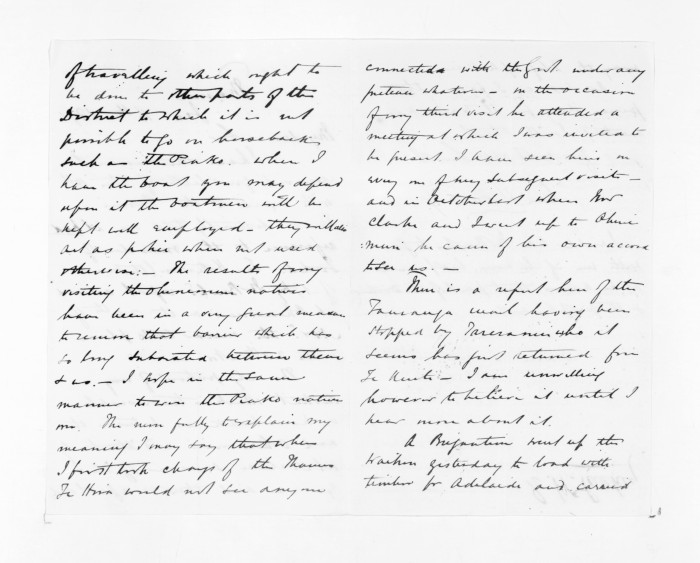 of travelling which ought to
be done to other parts of the
District to which it is not
possible to go on horseback
such as the Piako. When I
have the boat you may depend
upon it the boatmen will be
kept well employed – they will also
act as police when not used
otherwise. – The results of my
visiting the Ohinemuri natives
have been in a very great measure
to remove that barrier which has
so long subsisted between them
& us. – I hope in the same
manner to win the Piako natives
over. The more fully to explain my
meaning I may say that when
I first took charge of the Thames
Te Hira would not see anyone
connected with the Govt under any
pretence whatever – on the occasion
of my third visit he attended a
meeting at which I was invited to
be present. I have seen him on
every one of my subsequent visits –
and in October last when Mr
Clarke and I went up to Ohine
:muri he came of his own accord
to see us. –
There is a report here of the
Tauranga mail having been
stopped by Tareranui who it
seems has just returned from
Te Kuiti – I am unwilling
however to believe it until I
hear more about it.
A Brigantine went up the
Waihou yesterday to load with
timber for Adelaide and carried